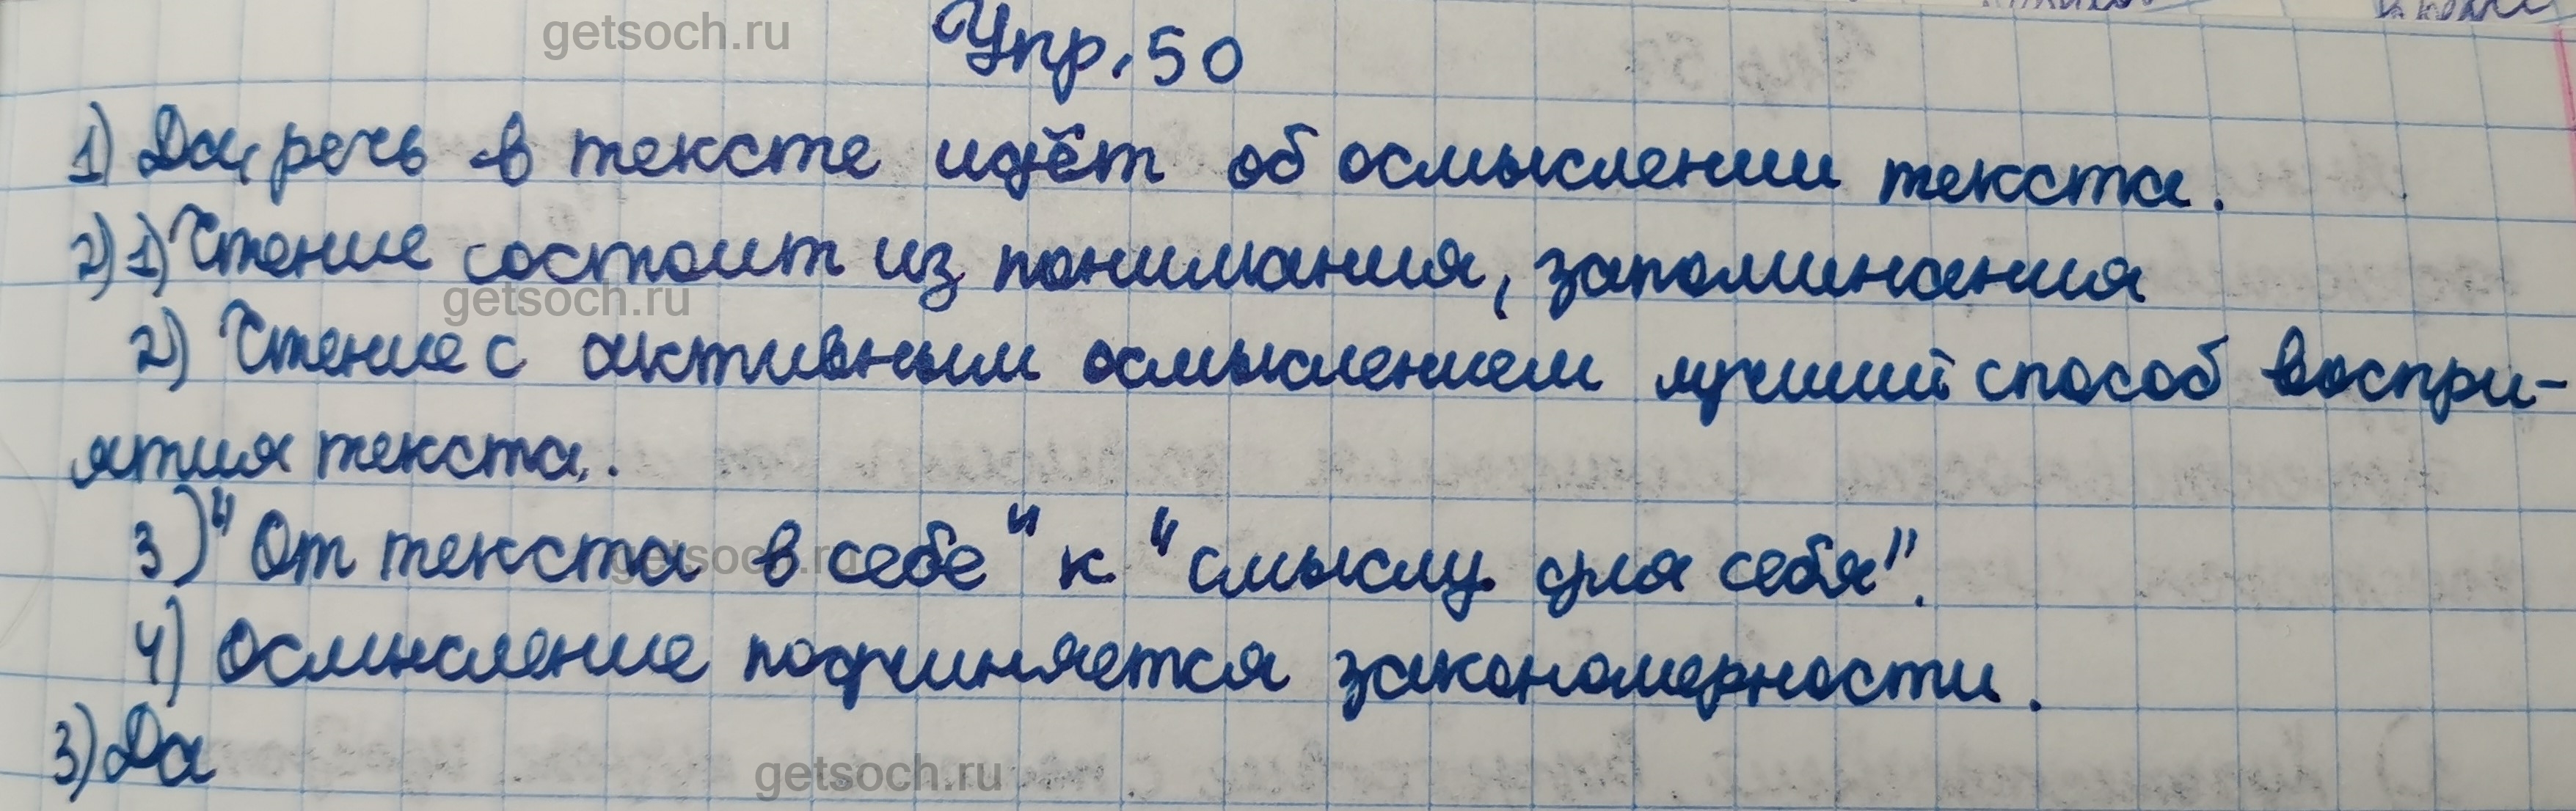 getsoch.ru
Упр. 50
1) Да, речь в тексте идёт об осмыслении текста.
2) 1) Чтение состоит из понимания, запоминания
getsoch.ru
2) Чтение с активным осмыслением лучший способ воспри-
ятия текста.
3) "От текста в себе" к "смыслу для себя".
getsoch.ru
4) Осмысление подчиняется закономерности.
3) Да
getsoch.ru